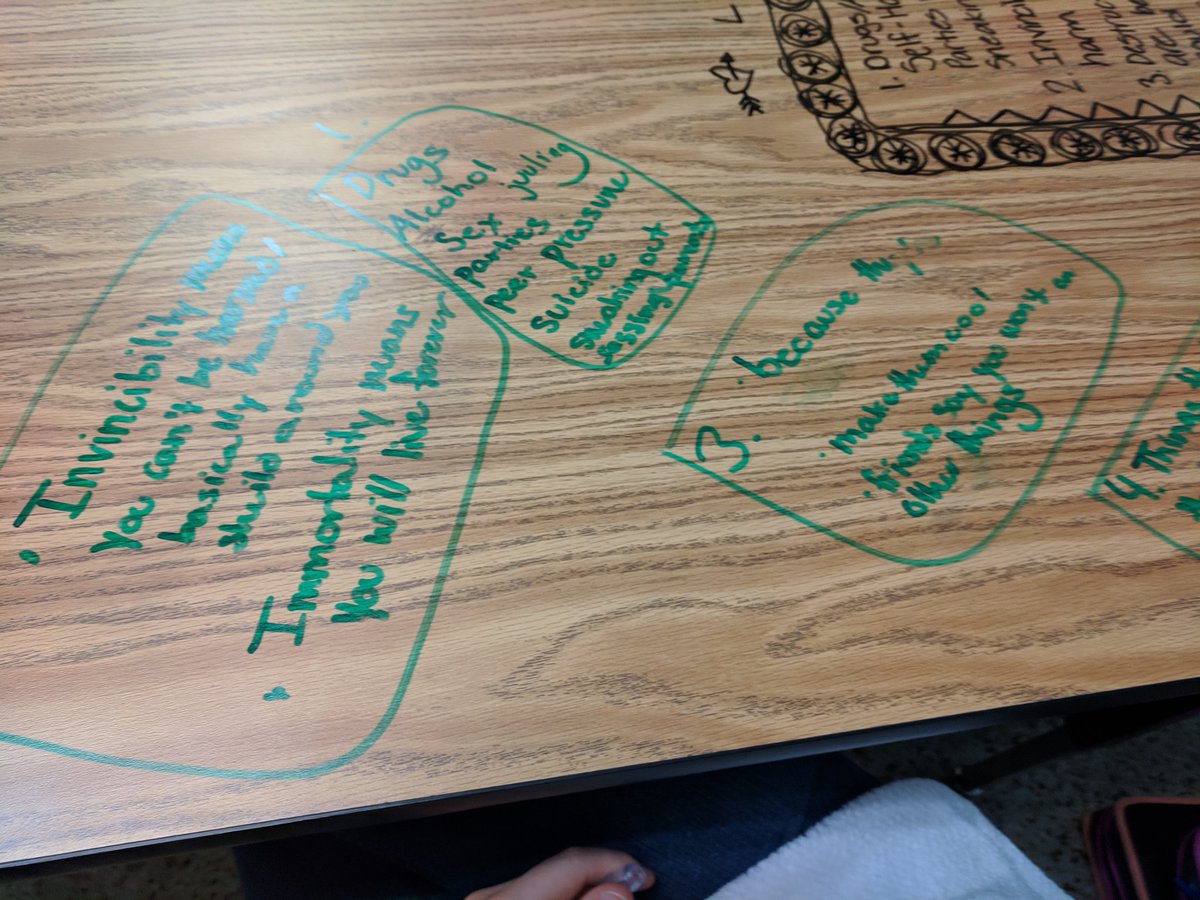 1.
Drugs
Alcohol
Sex juuling
Parties
Peer pressure
Suicide
Sneaking out
sassing parents
• Invincibility means
you can't be harmed,
basically have a
sheild around you
• Immortality means
You will live forever
3.
• because
• make them cool
• friends say you won't or
other things
4. Things
1. Drugs/
Self-Ha
Parties
Sneakin
2. Invinci
harm
3.